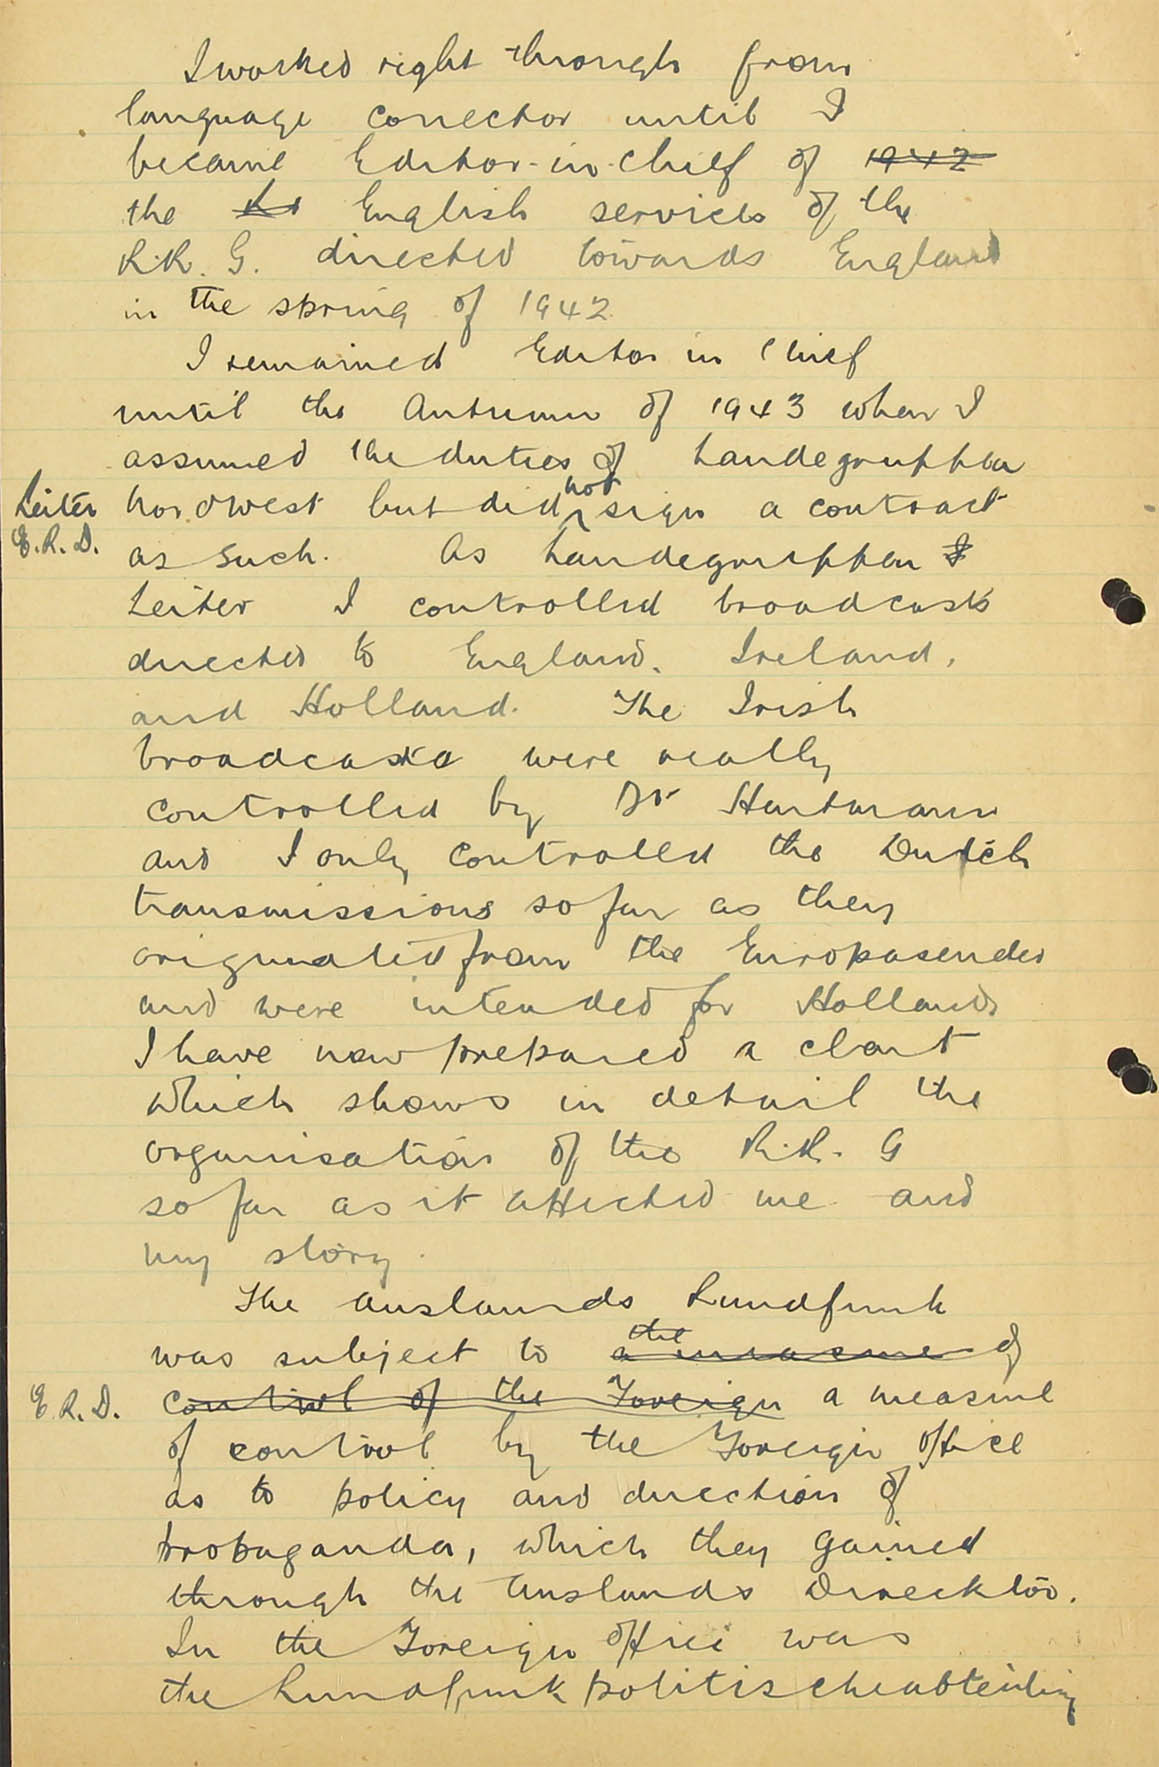 I worked right through from
language corrector until I
became Editor-in-Chief of ~~1942~~
the English services of the
R.R.G. directed towards England
in the spring of 1942
I remained Editor in Chief
until the Autumn of 1943 when I
assumed the duties of Landegruppen
Leiter Nordwest but did not sign a contract
E.R.D. as such. As Landegruppen ~~I~~
Leiter I controlled broadcasts
directed to England, Ireland,
and Holland. The Irish
broadcasts were really
controlled by Dr Hartmann
and I only controlled the Dutch
transmissions so far as they
originated from the Europasender
and were intended for Holland
I have now prepared a chart
which shows in detail the
organisation of the R.R.G
so far as it affected me and
my story.
The Auslands Rundfunk
was subject to ~~a measure~~ the of
E.R.D. ~~control of the Foreign~~ a measure
of control by the Foreign Office
as to policy and direction of
propaganda, which they gained
through the Auslands Direcktor.
In the Foreign Office was
the Rundfunk politischeabteilung